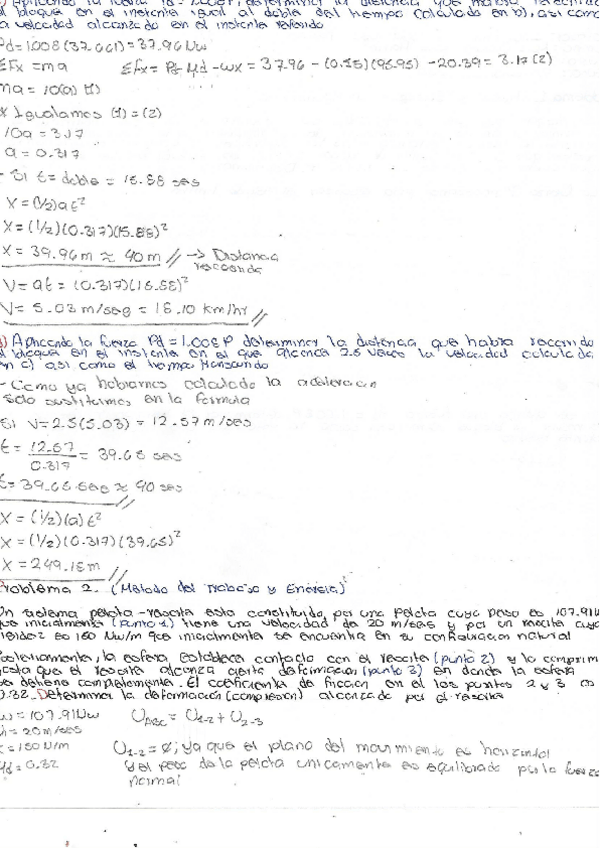 Aplicando la fuerza determinar la distancia que habrá recorrido
el bloque en el instante igual al doble del tiempo calculado en b), así como
la velocidad alcanzada en el instante referido
Pd = 1.008 (37.661) = 37.96 Nw
ΣFx = ma ΣFx = Pd - μd - wx = 37.96 - (0.15)(95.95) - 20.39 = 3.17 (2)
ma = 10(a) (1)
* Igualamos (1) = (2)
10a = 3.17
a = 0.317
- Si t = doble = 15.88 seg
X = (1/2)at²
X = (1/2)(0.317)(15.88)²
X = 39.96m ≈ 40m // → Distancia
recorrida
V = at = (0.317)(15.88)²
V = 5.03 m/seg = 18.10 km/hr //
d) Aplicando la fuerza Pd = 1.008P determinar la distancia que habrá recorrido
el bloque en el instante en el que alcance 2.5 veces la velocidad calculada
en c) así como el tiempo
- Como ya habíamos calculado la aceleración
solo sustituimos en la formula
Si V = 2.5(5.03) = 12.57 m/seg
t = 12.57 / 0.317 = 39.65 seg
t = 39.65 seg ≈ 40 seg //
X = (1/2)(a)t²
X = (1/2)(0.317)(39.65)²
X = 249.18m //
Problema 2. (Metodo del Trabajo y Energia)
Un sistema pelota - resorte esta constituido, por una pelota cuyo peso es 107.91N
que inicialmente (punto 1) tiene una velocidad de 20 m/seg y por un resorte cuya
rigidez es 150 Nw/m que inicialmente se encuentra en su configuracion natural
Posteriormente, la esfera establece contacto con el resorte (punto 2) y lo comprime
hasta que el resorte alcanza cierta deformacion (punto 3) en donde la esfera
se detiene completamente. El coeficiente de friccion en el los puntos 2 y 3 es
0.32. Determinar la deformacion (compresion) alcanzada por el resorte
w = 107.91 Nw U ABC = U 1-2 + U 2-3
Vi = 20 m/seg
k = 150 N/m U 1-2 = 0; ya que el plano del movimiento es horizontal
μd = 0.32 y el peso de la pelota unicamente es equilibrado por la fuerza
normal